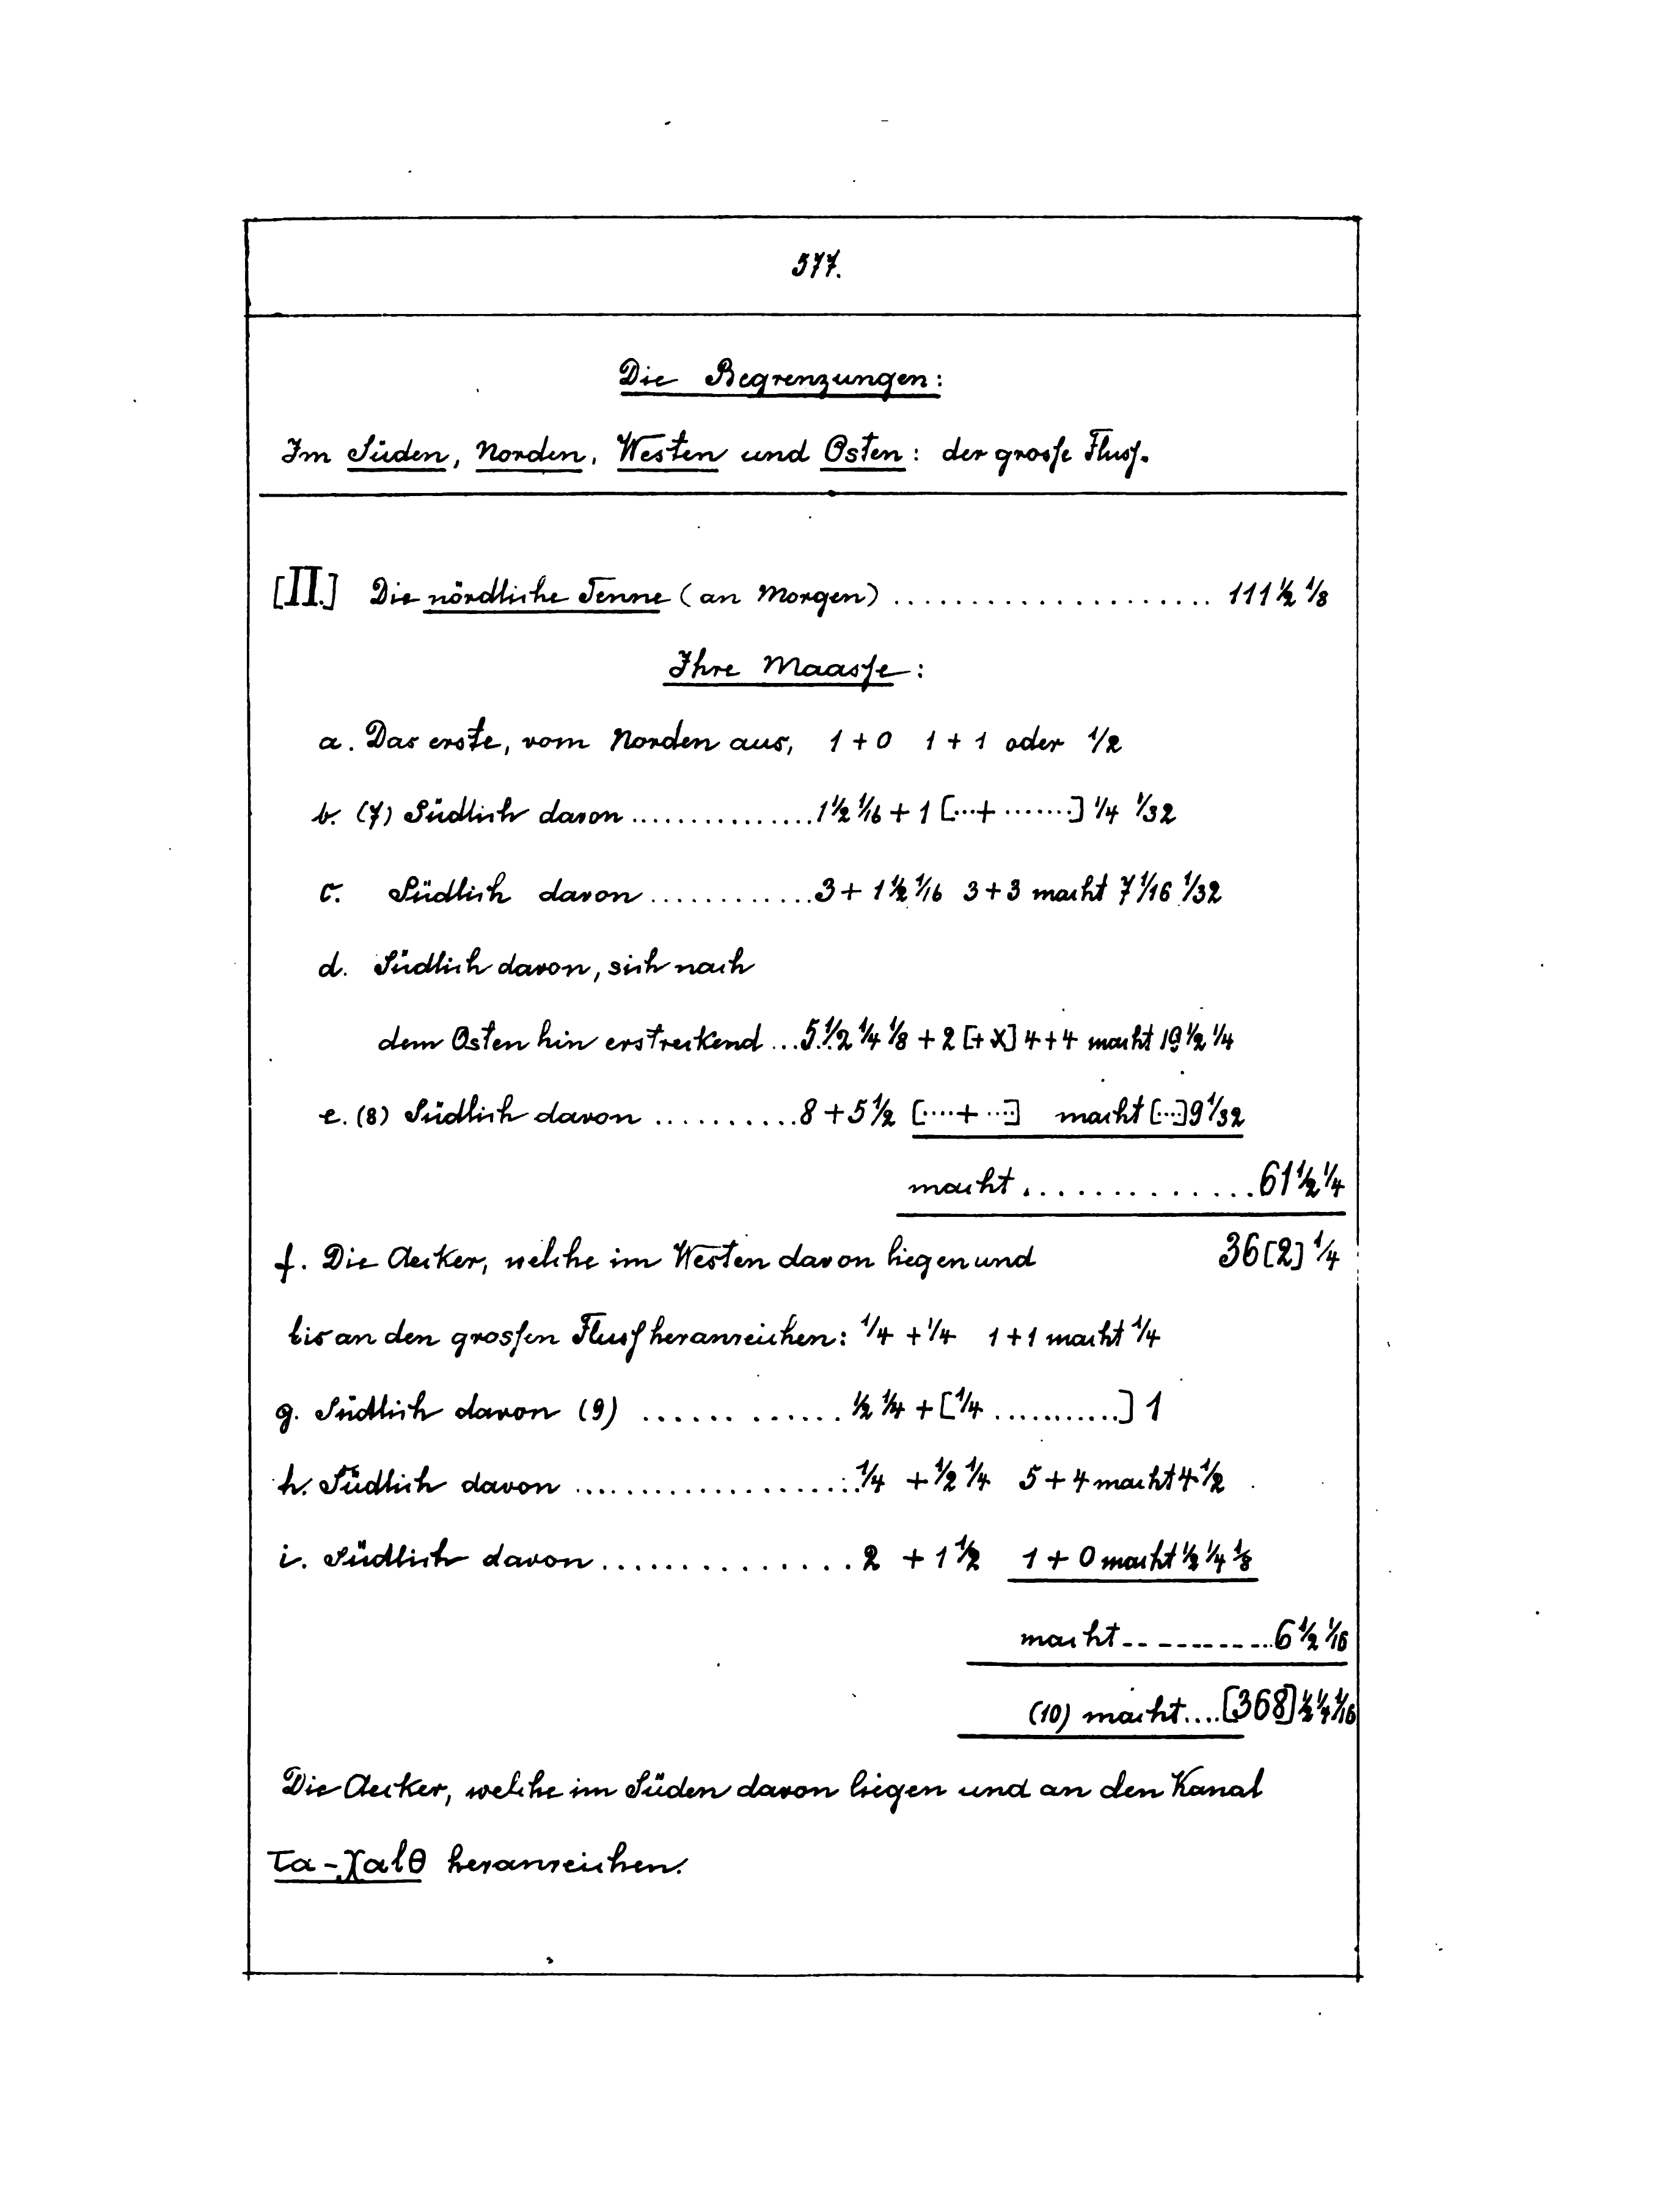 577.
Die Begrenzungen:
Im Süden, Norden, Westen und Osten: der grosse Fluss.
[II.] Die nördliche Tenne (an Morgen) ..................... 111 1/2 1/8
Ihre Maasse:
a. Das erste, vom Norden aus, 1 + 0 1 + 1 oder 1/2
b. (7) Südlich davon ............... 1 1/2 1/16 + 1 [...+ .......] 1/4 1/32
c. Südlich davon ............ 3 + 1 1/2 1/16 3 + 3 macht 7 1/16 1/32
d. Südlich davon, sich nach
dem Osten hin erstreckend ... 5 1/2 1/4 1/8 + 2 [+ X] 4 + 4 macht 19 1/2 1/4
e. (8) Südlich davon .......... 8 + 5 1/2 [....+ ...] macht [...] 9 1/32
macht .............. 61 1/2 1/4
f. Die Aecker, welche im Westen davon liegen und 36[2] 1/4
bis an den grossen Fluss heranreichen: 1/4 + 1/4 1 + 1 macht 1/4
g. Südlich davon (9) ...... ....... 1/2 1/4 + [1/4 ............] 1
h. Südlich davon .................... 1/4 + 1/2 1/4 5 + 4 macht 4 1/2
i. Südlich davon .............. 2 + 1 1/2 1 + 0 macht 1/2 1/4 1/8
macht ........... 6 1/2 1/16
(10) macht .... [368] 1/2 1/4 1/16
Die Aecker, welche im Süden davon liegen und an den Kanal
Ta-χalθ heranreichen.